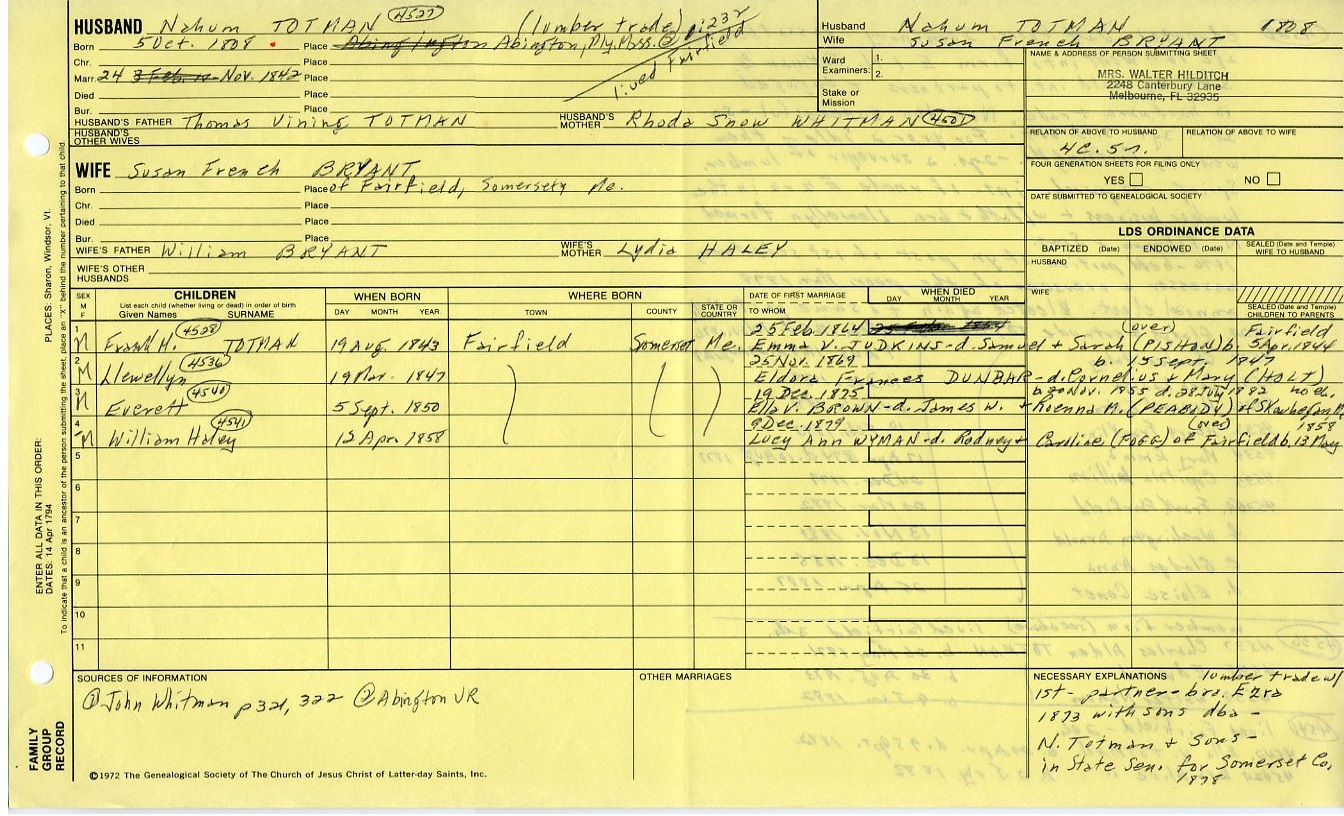 HUSBAND Nahum TOTMAN 4527 (lumber trade) p:232
Born 5 Oct. 1808 Place Abington, Ply. Mass. @ lived Fairfield
Chr. Place
Marr. 24 Nov. 1842 Place
Died Place
Bur. Place
HUSBAND'S FATHER Thomas Vining TOTMAN HUSBAND'S MOTHER Rhoda Snow WHITMAN 4501
HUSBAND'S OTHER WIVES
Husband Nahum TOTMAN 1808
Wife Susan French BRYANT
Ward Examiners: 1. 2.
Stake or Mission
NAME & ADDRESS OF PERSON SUBMITTING SHEET
MRS. WALTER HILDITCH
2248 Canterbury Lane
Melbourne, FL 32935
RELATION OF ABOVE TO HUSBAND RELATION OF ABOVE TO WIFE
4C.5r.
FOUR GENERATION SHEETS FOR FILING ONLY
YES NO
DATE SUBMITTED TO GENEALOGICAL SOCIETY
WIFE Susan French BRYANT
Born Place of Fairfield, Somerset, Me.
Chr. Place
Died Place
Bur. Place
WIFE'S FATHER William BRYANT WIFE'S MOTHER Lydia HALEY
WIFE'S OTHER HUSBANDS
LDS ORDINANCE DATA
BAPTIZED (Date) ENDOWED (Date) SEALED (Date and Temple) WIFE TO HUSBAND
HUSBAND
WIFE
SEALED (Date and Temple) CHILDREN TO PARENTS
SEX M F CHILDREN List each child (whether living or dead) in order of birth Given Names SURNAME
WHEN BORN DAY MONTH YEAR
WHERE BORN TOWN COUNTY STATE OR COUNTRY
DATE OF FIRST MARRIAGE TO WHOM
WHEN DIED DAY MONTH YEAR
1 M Frank H. 4528 TOTMAN 19 Aug. 1843 Fairfield Somerset Me. 25 Feb. 1864 (over) Fairfield
Emma V. JUDKINS-d. Samuel + Sarah (PISHON) b. 5 Apr. 1844
2 M Llewellyn 4536 19 Mar. 1847 25 Nov. 1869 b. 15 Sept. 1847
Eldora Frances DUNBAR-d. Cornelius & Mary (HOLT)
3 M Everett 4540 5 Sept. 1850 19 Dec. 1875 b. 20 Nov. 1855 d. 28 July 1882 no ch.
Ella V. BROWN-d. James W. + Roenna M. (PEABODY) of Skowhegan M.
4 M William Haley 4541 12 Apr. 1858 9 Dec. 1879 (over) 1858
Lucy Ann WYMAN-d. Rodney + Caroline (FOGG) of Fairfield b. 13 May
5
6
7
8
9
10
11
SOURCES OF INFORMATION
@ John Whitman p 321, 322 @ Abington VR
OTHER MARRIAGES
NECESSARY EXPLANATIONS lumber trade w/
1st - partner - bro. Ezra
1873 with sons dba -
N. Totman & Sons -
in State Sen. for Somerset Co,
1878
©1972 The Genealogical Society of The Church of Jesus Christ of Latter-day Saints, Inc.
FAMILY GROUP RECORD
ENTER ALL DATA IN THIS ORDER:
DATES: 14 Apr 1794
PLACES: Sharon, Windsor, Vt.
To indicate that a child is an ancestor of the person submitting the sheet, place an "X" behind the number pertaining to that child.